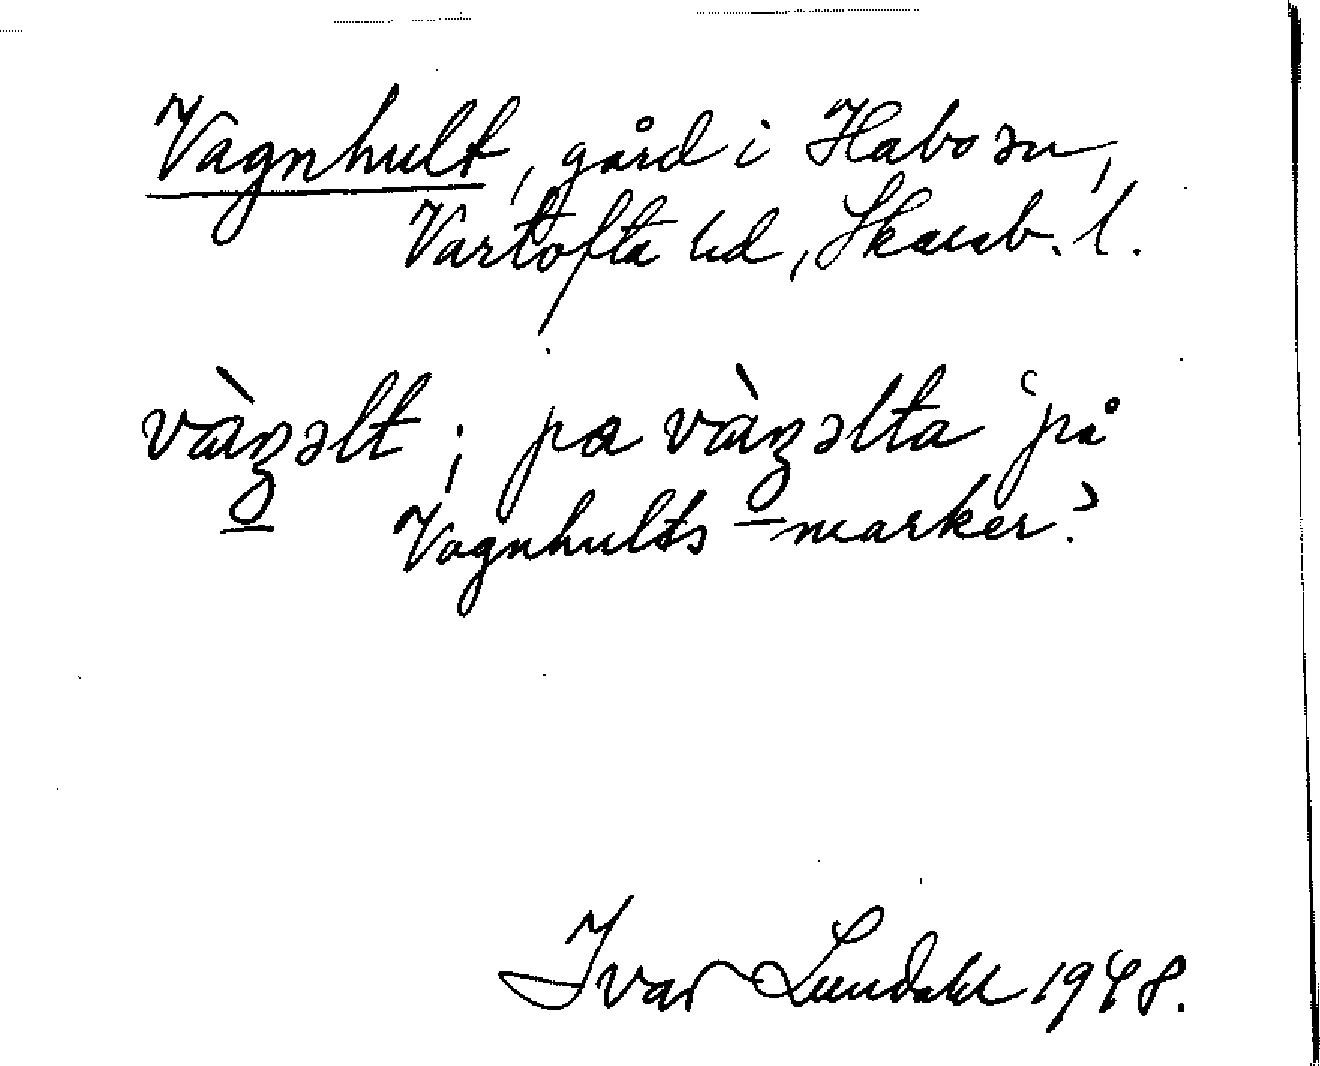 Vagnhult, gård i Habo sn,
Vartofta hd, Skarab. l.
vàŋəlt; pa vàŋəlta ‘på
Vagnhults-marker.’
Ivar Lundahl 1948.